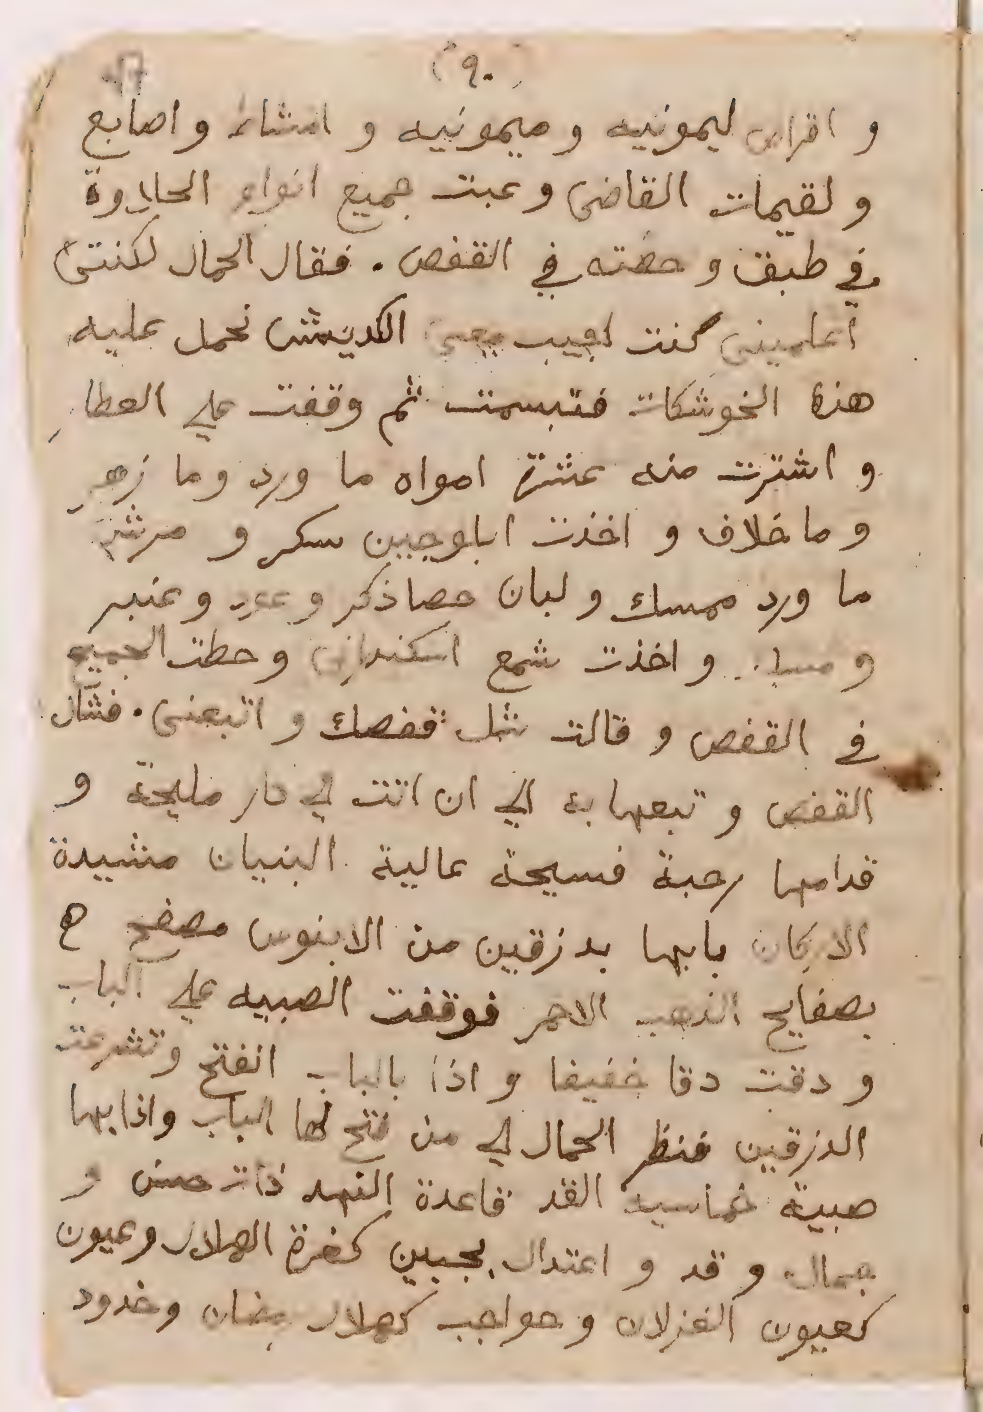 (٩٠)
و اقراص ليمونيه و ميمونيه و امشاط و اصابع
و لقيمات القاضى و عبت جميع انواع الحلاوة
في طبق و حطته في القفص . فقال الحمال لكنتى
اعلمينى كنت اجيب معى الكديش نحمل عليه
هذه الخوشكات فتبسمت ثم وقفت علي العطار
و اشترت منه عشرة امواه ما ورد وما زهر
و ما خلاف و اخذت ابلوجين سكر و مرش
ما ورد ممسك و لبان حصا ذكر و عود و عنبر
و مسك . و اخذت شمع اسكندرانى و حطت الجميع
في القفص و قالت شل قفصك و اتبعنى . فشال
القفص و تبعها به الي ان اتت الي دار مليحة و
قدامها رحبة فسيحة عالية البنيان مشيدة
الاركان بابها بدرقين من الابنوس مصفح
بصفايح الذهب الاحمر فوقفت الصبيه علي الباب
و دقت دقا خفيفا و اذا بالباب انفتح و تشرعت
الدرقين فنظر الحمال الي من فتح لها الباب واذا بها
صبية خماسية القد قاعدة النهد ذات حسن و
جمال و قد و اعتدال بجبين كغرة الهلال وعيون
كعيون الغزلان و حواجب كهلال رمضان و خدود